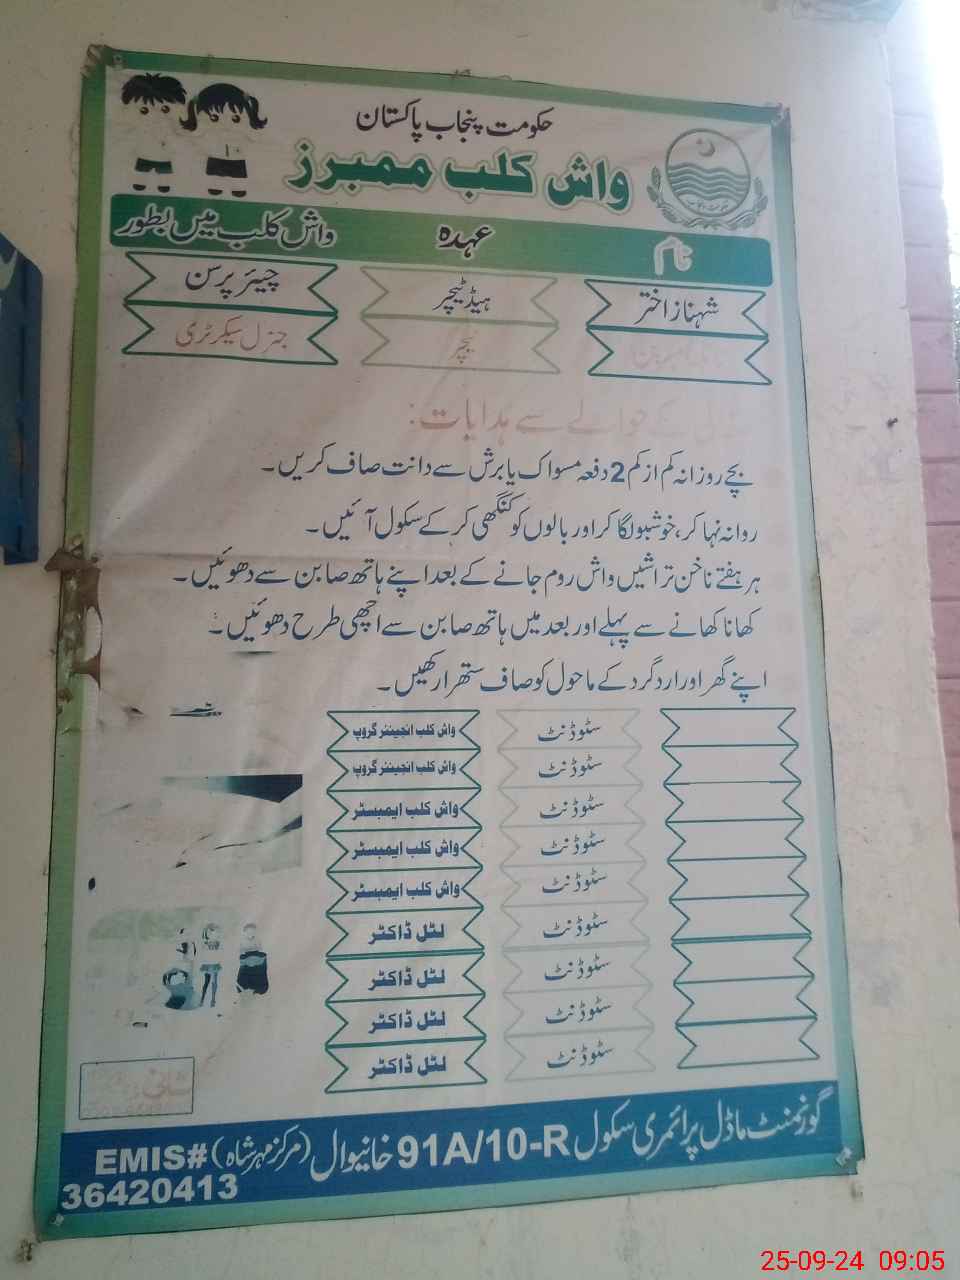 حکومت پنجاب پاکستان
واش کلب ممبرز
نام عہدہ واش کلب میں بطور
شہناز اختر ہیڈ ٹیچر چیئر پرسن
ٹیچر جنرل سیکرٹری
کے حوالے سے ہدایات:
بچے روزانہ کم از کم 2 دفعہ مسواک یا برش سے دانت صاف کریں۔
روانہ نہا کر، خوشبو لگا کر اور بالوں کو کنگھی کر کے سکول آئیں۔
ہر ہفتے ناخن تراشیں واش روم جانے کے بعد اپنے ہاتھ صابن سے دھوئیں۔
کھانا کھانے سے پہلے اور بعد میں ہاتھ صابن سے اچھی طرح دھوئیں۔
اپنے گھر اور ارد گرد کے ماحول کو صاف ستھرا رکھیں۔
سٹوڈنٹ واش کلب انجینئر گروپ
سٹوڈنٹ واش کلب انجینئر گروپ
سٹوڈنٹ واش کلب ایمبسٹر
سٹوڈنٹ واش کلب ایمبسٹر
سٹوڈنٹ واش کلب ایمبسٹر
سٹوڈنٹ لٹل ڈاکٹر
سٹوڈنٹ لٹل ڈاکٹر
سٹوڈنٹ لٹل ڈاکٹر
سٹوڈنٹ لٹل ڈاکٹر
گورنمنٹ ماڈل پرائمری سکول 91A/10-R خانیوال (مرکز مہر شاہ) EMIS#
36420413
25-09-24 09:05